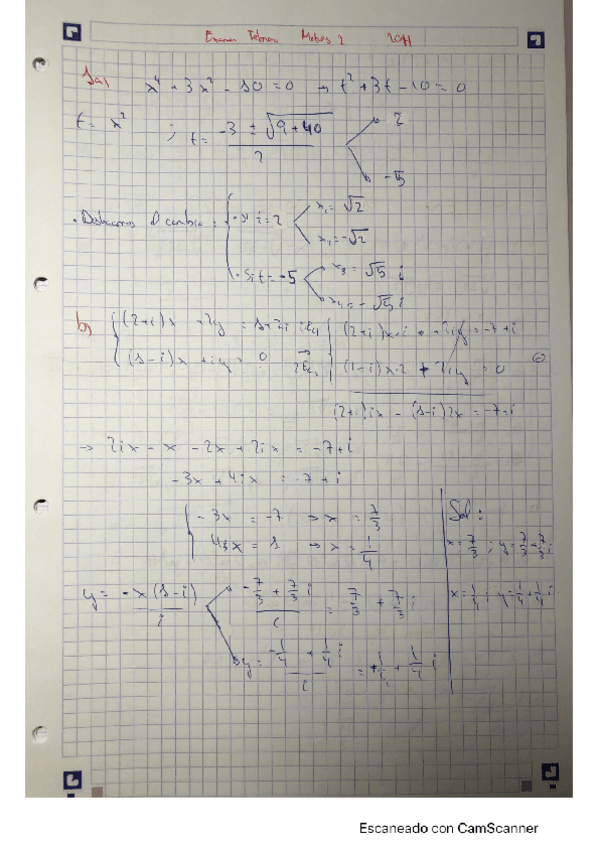 Examen Febrero Mates 2 2011
1a) x⁴ + 3x² - 10 = 0 → t² + 3t - 10 = 0
t = x² ; t = (-3 ± √(9+40)) / 2
2
-5
. Deshacemos el cambio :
· si t = 2
x₁ = √2
x₂ = -√2
· si t = -5
x₃ = √5 i
x₄ = -√5 i
b) (2+i)x + 2y = 1+7i
(1-i)x + iy = 0
(2+i)x·i + 2iy = -7+i
(1-i)x·2 + 2iy = 0
(2+i)ix - (1-i)2x = -7+i
→ 2ix - x - 2x + 2ix = -7+i
-3x + 4ix = -7+i
-3x = -7 → x = 7/3
4x = 1 → x = 1/4
y = -x(1-i) / i
(-7/3 + 7/3 i) / i = 7/3 + 7/3 i
y = (-1/4 + 1/4 i) / i = 1/4 + 1/4 i
Sol :
x = 7/3 ; y = 7/3 + 7/3 i
x = 1/4 ; y = 1/4 + 1/4 i
Escaneado con CamScanner